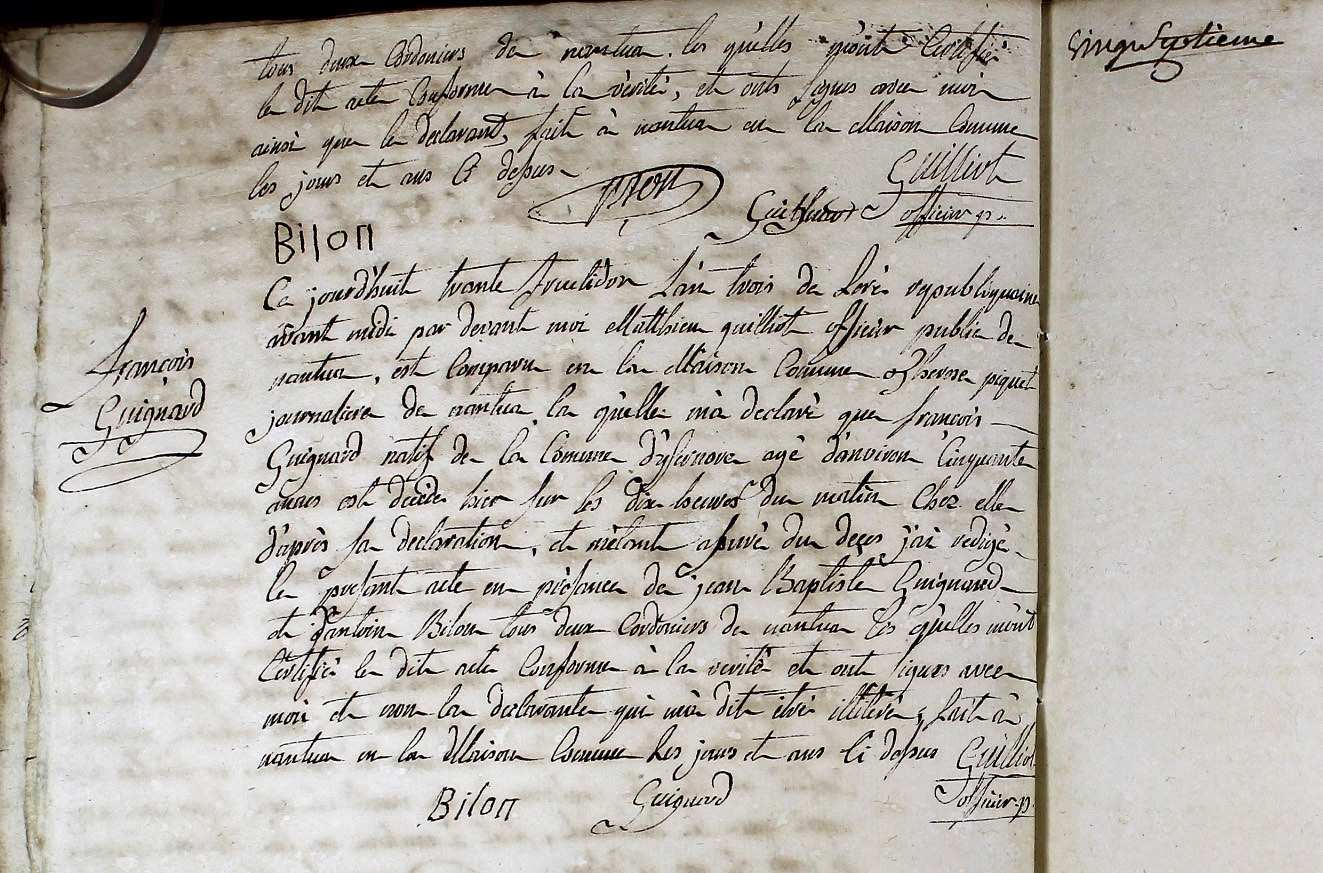 tous deux Cordoniers de nantua les quelles m'ont Certifié
le dit acte Conforme à la vérité, et onts signés avec moi
ainsi que le declarant, fait à nantua en la Maison Comune
les jours et ans Ci desus
Guilliot
officier p.
Bilon
Ce jourd'huit trante fructidor L'an trois de L'ère republiquaine
avant midi par devant moi Matthieu guilliot officier public de
nantua, est Comparu en la Maison Comune piquet
journaliere de nantua la quelle m'a declaré que françois
Guignard natif de la Comune d'isernore agé d'anviron Cinquante
annes est decédé hier sur les dix heures du matin Chez elle
d'après sa declaration, et m'étant assuré du deces j'ai redigé
le present acte en présance de jean Baptiste Guignard
et d'antoine Bilon tous deux Cordoniers de nantua les quelles m'ont
Certifié le dit acte Conforme à la verité et ont signés avec
moi et non la declarante qui m'a dit être illiteré, fait à
nantua en la Maison Comune les jours et ans Ci desus
Guilliot
officier p.
Bilon
Guignard
françois
Guignard
Cinq Septieme